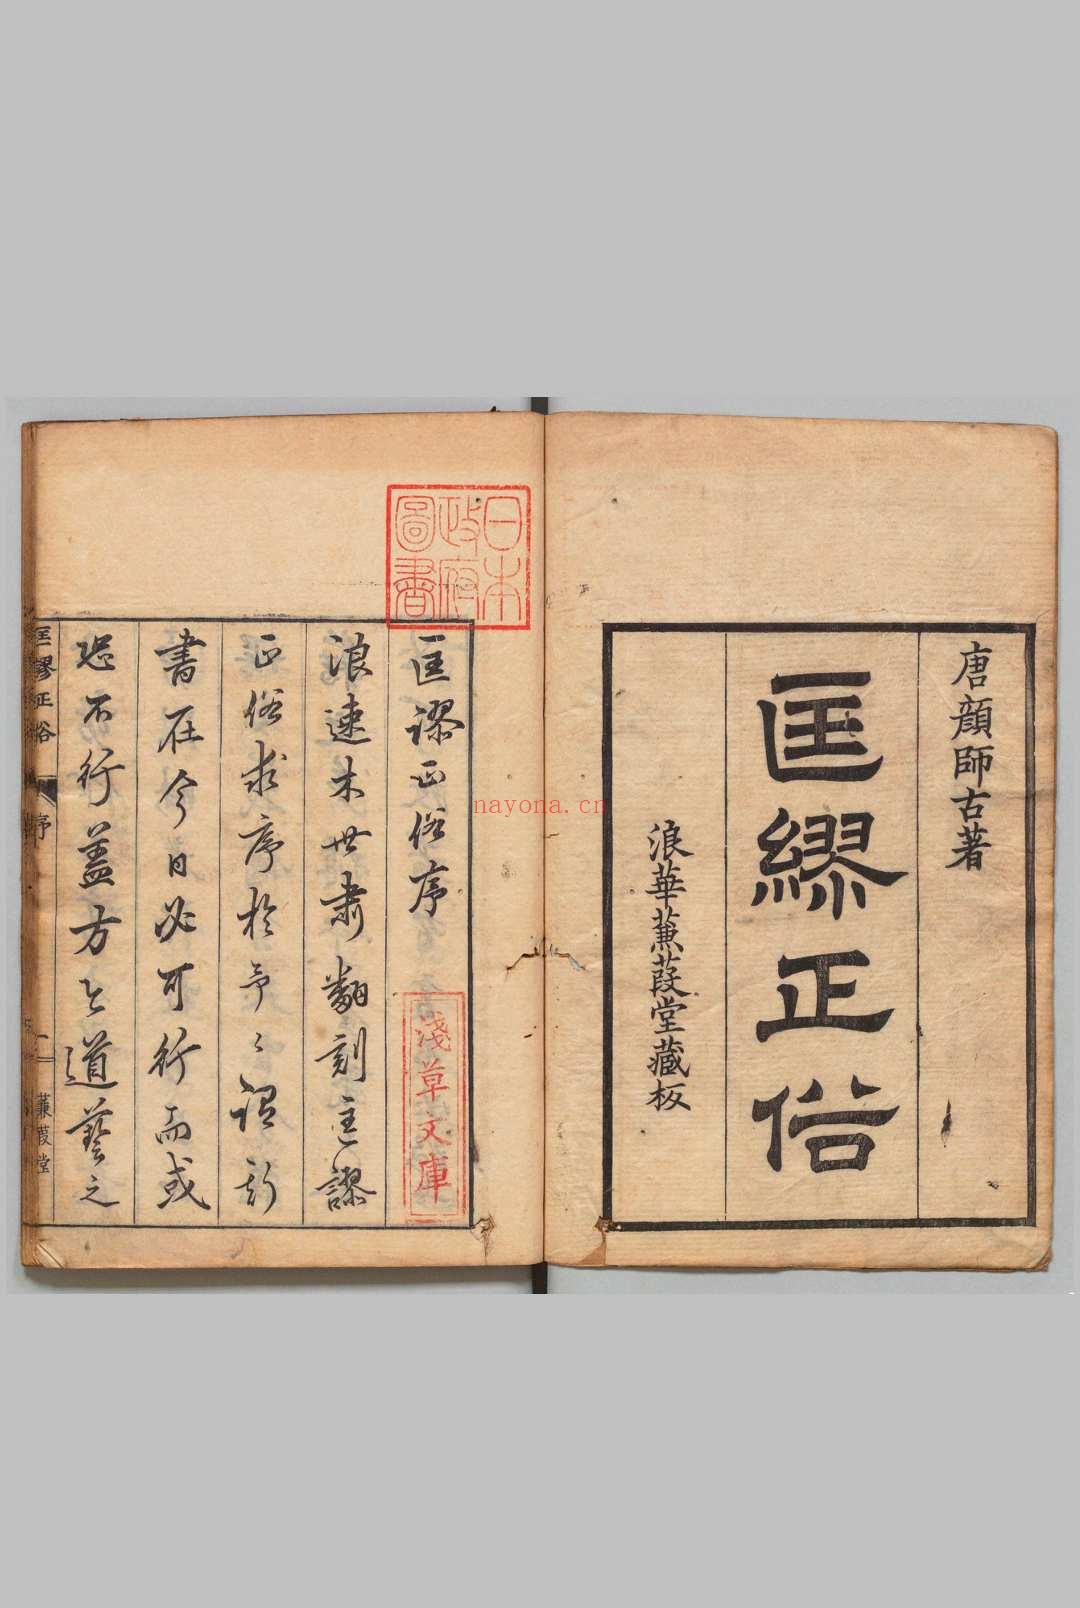 唐顔師古著
匡繆正俗
浪華蒹葭堂藏板
日本
政府
圖書
匡謬正俗序
淺草文庫
浪速木世肅翻刻匡謬
正俗求序於予〻謂斯
書在今日必可行而或
恐不行蓋方今道藝之
匡謬正俗
序
一
蒹葭堂
nayona.cn